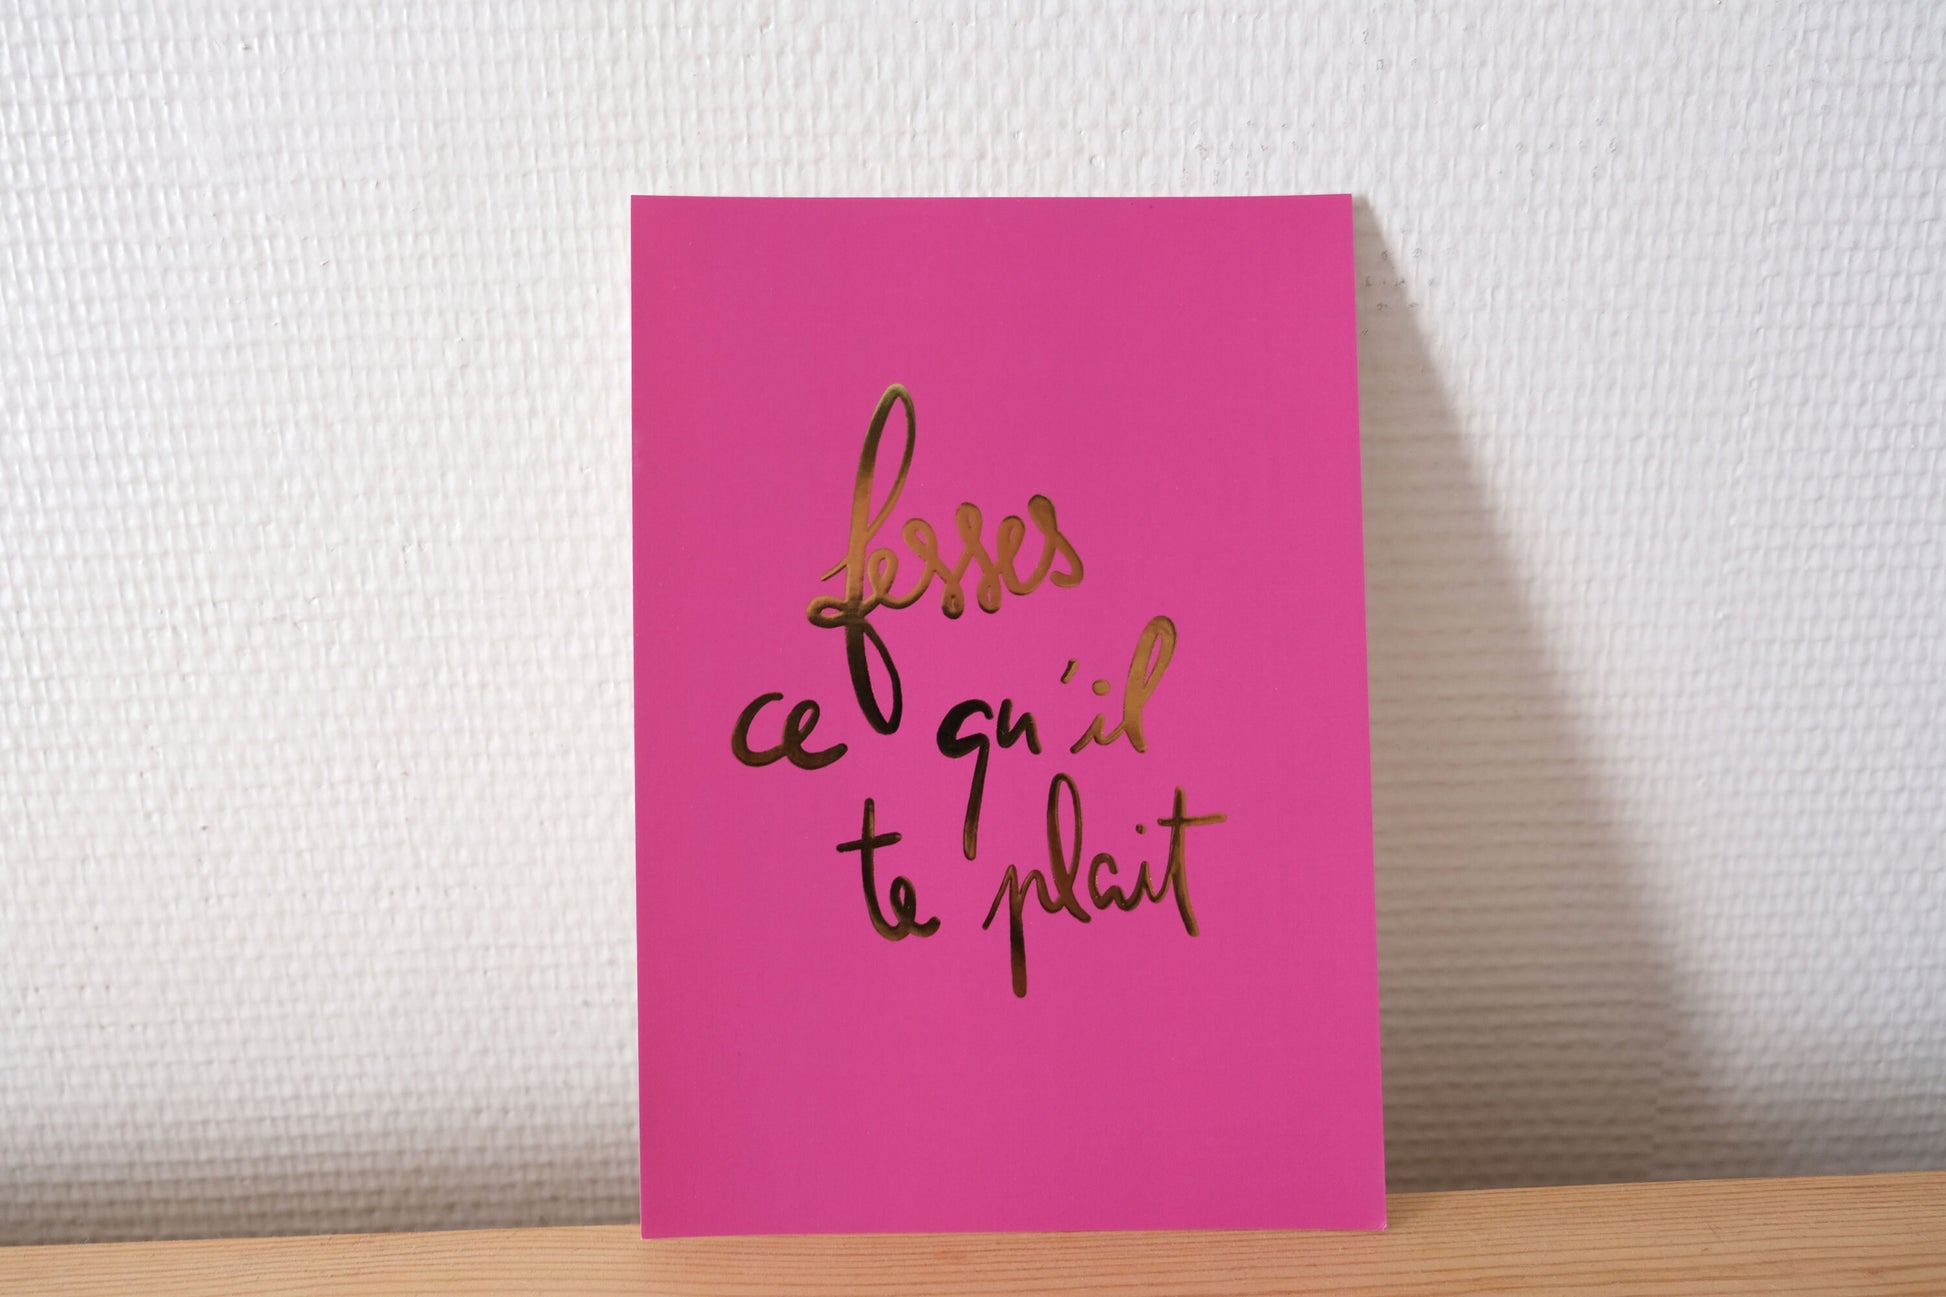 fesses
ce qu'il
te plait